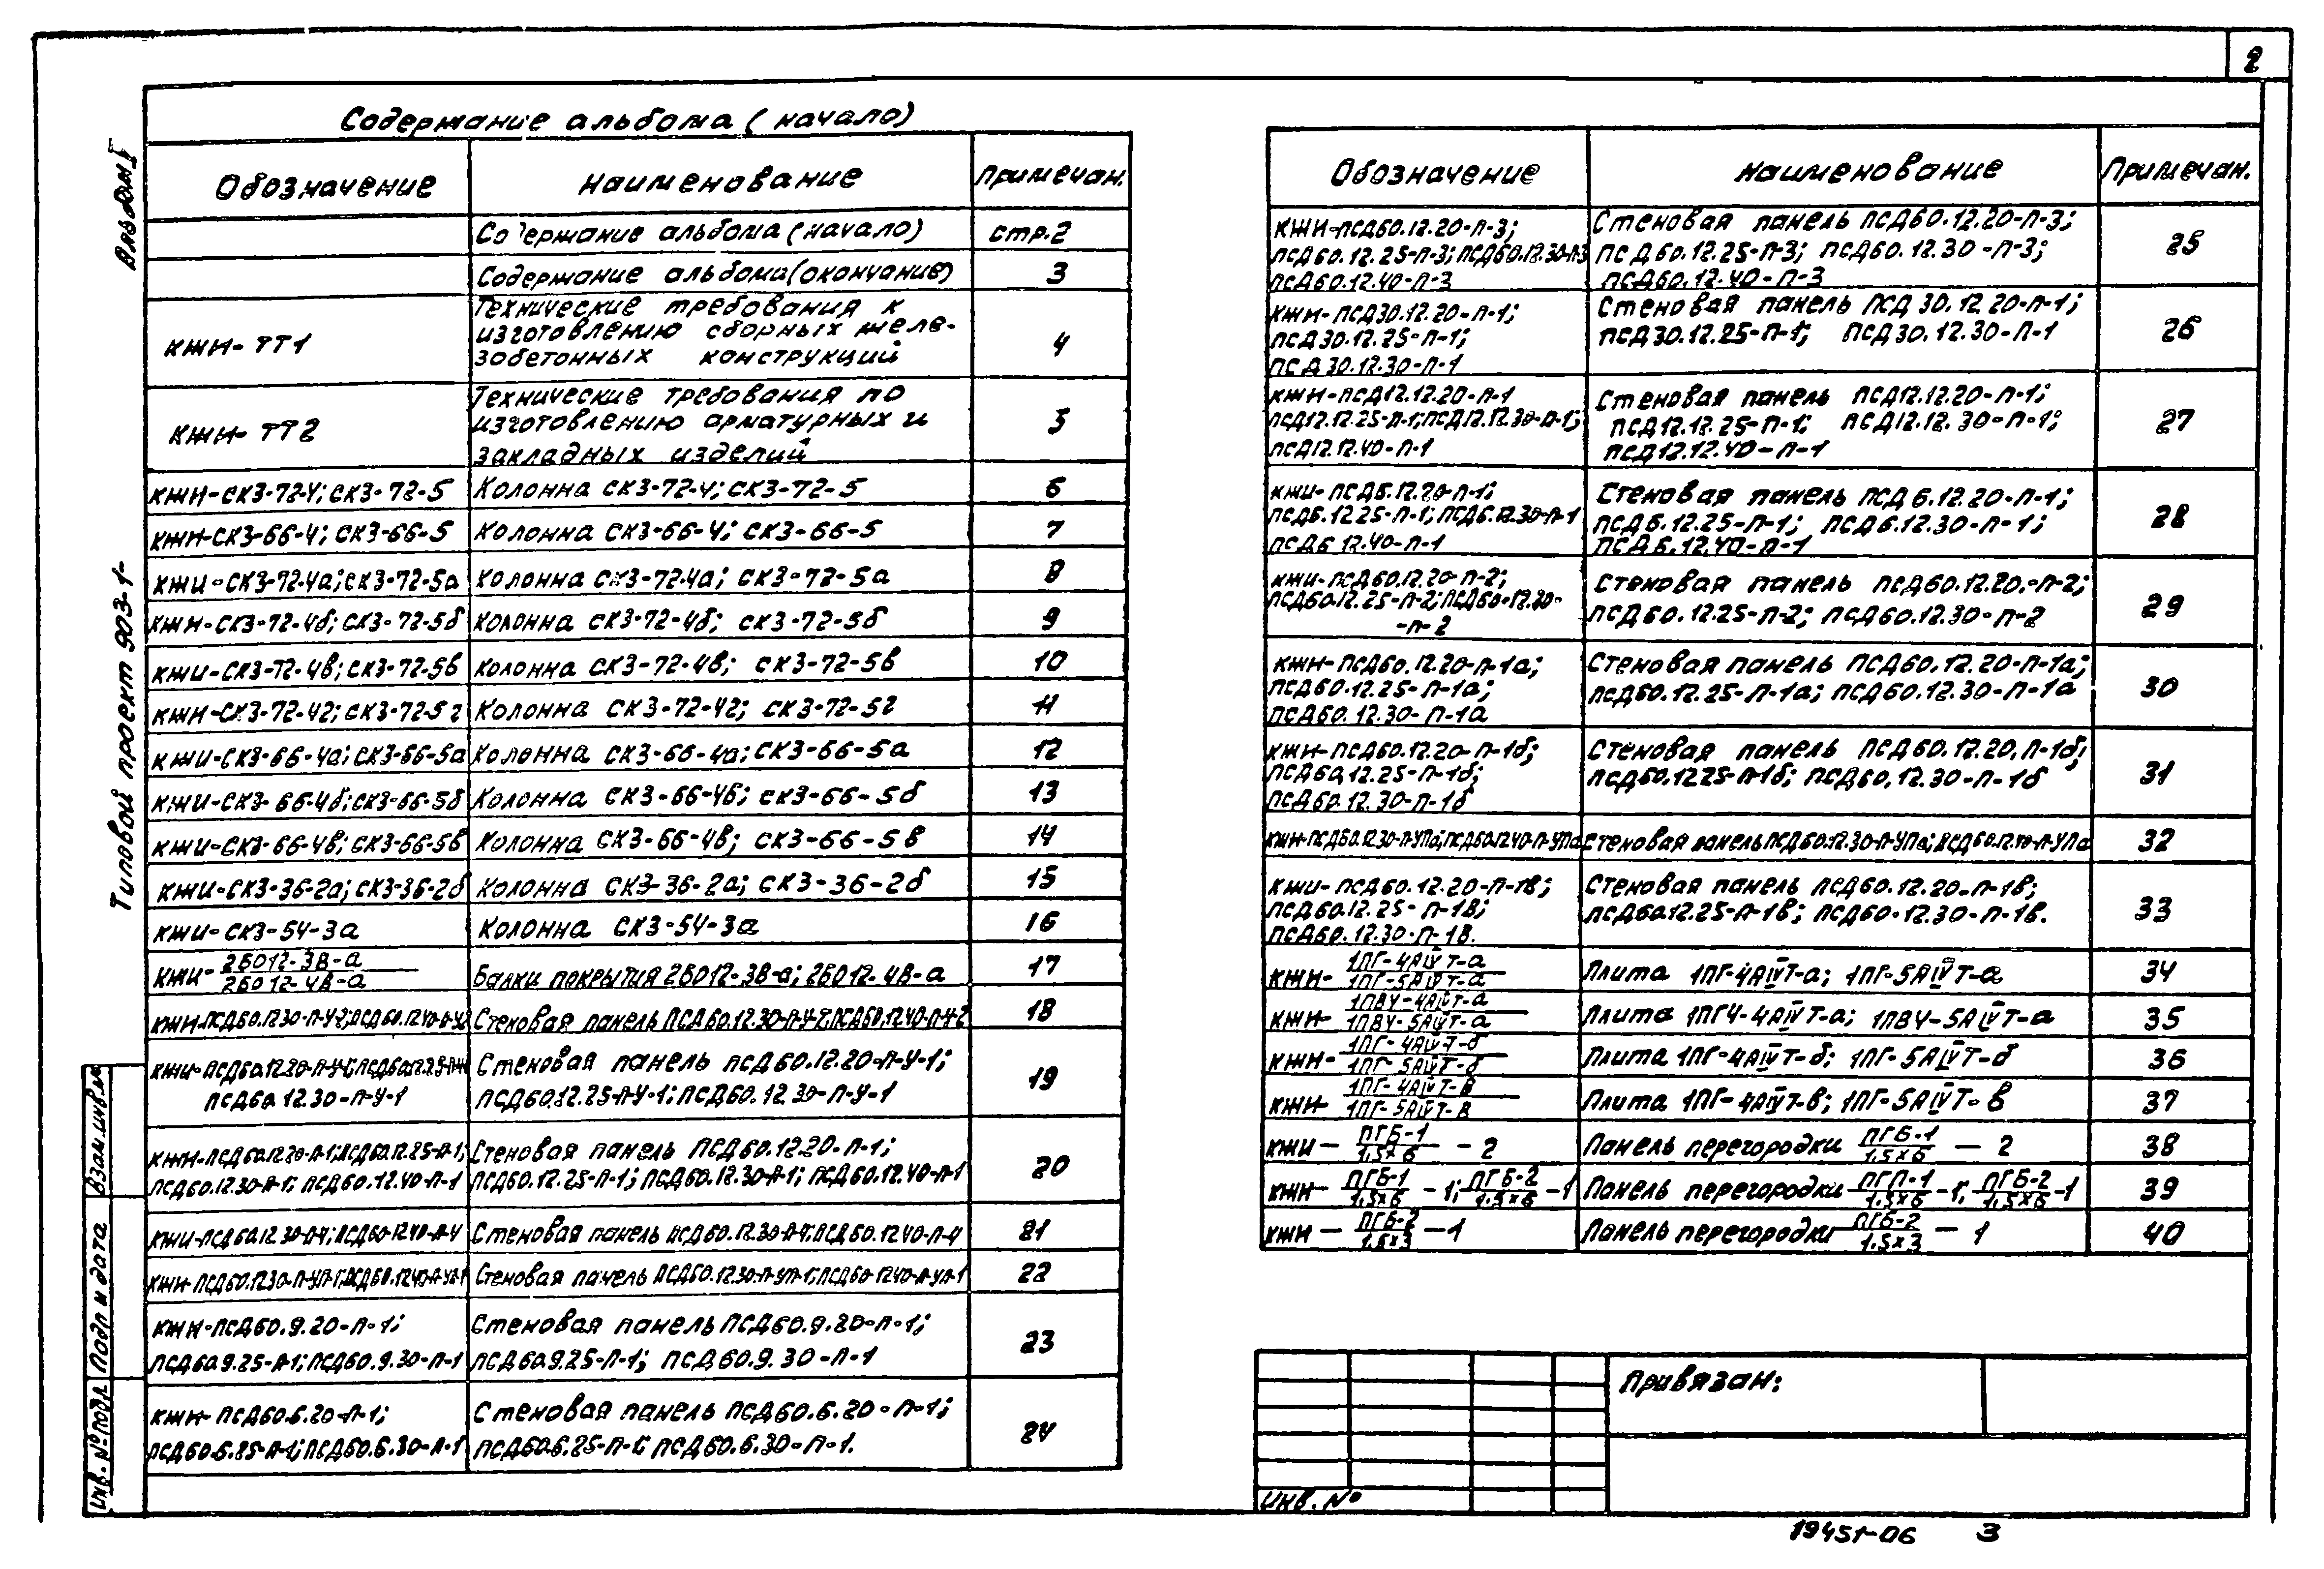 2
Содержание альбома (начало)
Обозначение Наименование Примечан.
Содержание альбома (начало) стр.2
Содержание альбома (окончание) 3
КЖИ-ТТ1 Технические требования к изготовлению сборных желе-
зобетонных конструкций 4
КЖИ-ТТ2 Технические требования по
изготовлению арматурных и
закладных изделий 5
КЖИ-СК3-72-4; СК3-72-5 Колонна СК3-72-4; СК3-72-5 6
КЖИ-СК3-66-4; СК3-66-5 Колонна СК3-66-4; СК3-66-5 7
КЖИ-СК3-72-4а; СК3-72-5а Колонна СК3-72-4а; СК3-72-5а 8
КЖИ-СК3-72-4б; СК3-72-5б Колонна СК3-72-4б; СК3-72-5б 9
КЖИ-СК3-72-4в; СК3-72-5в Колонна СК3-72-4в; СК3-72-5в 10
КЖИ-СК3-72-4г; СК3-72-5г Колонна СК3-72-4г; СК3-72-5г 11
КЖИ-СК3-66-4а; СК3-66-5а Колонна СК3-66-4а; СК3-66-5а 12
КЖИ-СК3-66-4б; СК3-66-5б Колонна СК3-66-4б; СК3-66-5б 13
КЖИ-СК3-66-4в; СК3-66-5в Колонна СК3-66-4в; СК3-66-5в 14
КЖИ-СК3-36-2а; СК3-36-2б Колонна СК3-36-2а; СК3-36-2б 15
КЖИ-СК3-54-3а Колонна СК3-54-3а 16
КЖИ- 2БО12-3В-а
2БО12-4В-а Балки покрытия 2БО12-3В-а; 2БО12-4В-а 17
КЖИ-ПСД60.12.30-П-У-2; ПСД60.12.40-П-У-2 Стеновая панель ПСД60.12.30-П-У-2; ПСД60.12.40-П-У-2 18
КЖИ-ПСД60.12.20-П-У-1; Стеновая панель ПСД60.12.20-П-У-1;
ПСД60.12.30-П-У-1 ПСД60.12.25-П-У-1; ПСД60.12.30-П-У-1 19
КЖИ-ПСД60.12.20-П-1; ПСД60.12.25-П-1; Стеновая панель ПСД60.12.20-П-1;
ПСД60.12.30-П-1; ПСД60.12.40-П-1 ПСД60.12.25-П-1; ПСД60.12.30-П-1; ПСД60.12.40-П-1 20
КЖИ-ПСД60.12.30-П-4; ПСД60.12.40-П-4 Стеновая панель ПСД60.12.30-П-4; ПСД60.12.40-П-4 21
КЖИ-ПСД60.12.30-П-УП-1; ПСД60.12.40-П-УП-1 Стеновая панель ПСД60.12.30-П-УП-1; ПСД60.12.40-П-УП-1 22
КЖИ-ПСД60.9.20-П-1; Стеновая панель ПСД60.9.20-П-1;
ПСД60.9.25-П-1; ПСД60.9.30-П-1 ПСД60.9.25-П-1; ПСД60.9.30-П-1 23
КЖИ-ПСД60.6.20-П-1; Стеновая панель ПСД60.6.20-П-1;
ПСД60.6.25-П-1; ПСД60.6.30-П-1 ПСД60.6.25-П-1; ПСД60.6.30-П-1. 24
Обозначение Наименование Примечан.
КЖИ-ПСД60.12.20-П-3; Стеновая панель ПСД60.12.20-П-3;
ПСД60.12.25-П-3; ПСД60.12.30-П-3 ПСД60.12.25-П-3; ПСД60.12.30-П-3; 25
ПСД60.12.40-П-3 ПСД60.12.40-П-3
КЖИ-ПСД30.12.20-П-1; Стеновая панель ПСД30.12.20-П-1;
ПСД30.12.25-П-1; ПСД30.12.25-П-1; ПСД30.12.30-П-1 26
ПСД30.12.30-П-1
КЖИ-ПСД12.12.20-П-1 Стеновая панель ПСД12.12.20-П-1;
ПСД12.12.25-П-1; ПСД12.12.30-П-1; ПСД12.12.25-П-1; ПСД12.12.30-П-1; 27
ПСД12.12.40-П-1 ПСД12.12.40-П-1
КЖИ-ПСД6.12.20-П-1; Стеновая панель ПСД6.12.20-П-1;
ПСД6.12.25-П-1; ПСД6.12.30-П-1 ПСД6.12.25-П-1; ПСД6.12.30-П-1; 28
ПСД6.12.40-П-1 ПСД6.12.40-П-1
КЖИ-ПСД60.12.20-П-2; Стеновая панель ПСД60.12.20.-П-2;
ПСД60.12.25-П-2; ПСД60.12.30- ПСД60.12.25-П-2; ПСД60.12.30-П-2 29
-П-2
КЖИ-ПСД60.12.20-П-1а; Стеновая панель ПСД60.12.20-П-1а;
ПСД60.12.25-П-1а; ПСД60.12.25-П-1а; ПСД60.12.30-П-1а 30
ПСД60.12.30-П-1а
КЖИ-ПСД60.12.20-П-1б; Стеновая панель ПСД60.12.20.П-1б;
ПСД60.12.25-П-1б; ПСД60.12.25-П-1б; ПСД60.12.30-П-1б 31
ПСД60.12.30-П-1б
КЖИ-ПСД60.12.30-П-УПа; ПСД60.12.40-П-УПа Стеновая панель ПСД60.12.30-П-УПа; ПСД60.12.40-П-УПа 32
КЖИ-ПСД60.12.20-П-1в; Стеновая панель ПСД60.12.20-П-1в;
ПСД60.12.25-П-1в; ПСД60.12.25-П-1в; ПСД60.12.30-П-1в. 33
ПСД60.12.30-П-1в.
КЖИ- 1ПГ-4АIVТ-а
1ПГ-5АIVТ-а Плита 1ПГ-4АIVТ-а; 1ПГ-5АIVТ-а 34
КЖИ- 1ПВ4-4АIVТ-а
1ПВ4-5АIVТ-а Плита 1ПГ4-4АIVТ-а; 1ПВ4-5АIVТ-а 35
КЖИ- 1ПГ-4АIVТ-б
1ПГ-5АIVТ-б Плита 1ПГ-4АIVТ-б; 1ПГ-5АIVТ-б 36
КЖИ- 1ПГ-4АIVТ-в
1ПГ-5АIVТ-в Плита 1ПГ-4АIVТ-в; 1ПГ-5АIVТ-в 37
КЖИ- ПГБ-1/1.5х6 -2 Панель перегородки ПГБ-1/1.5х6 - 2 38
КЖИ- ПГБ-1/1.5х6 -1; ПГБ-2/1.5х6 -1 Панель перегородки ПГП-1/1.5х6 -1; ПГБ-2/1.5х6 -1 39
КЖИ- ПГБ-2/1.5х3 -1 Панель перегородки ПГБ-2/1.5х3 - 1 40
Привязан:
Инв. №
19451-06 3
Альбом
Типовой проект 903-1-
Взам.инв.№
Подп и дата
Инв. № подл.